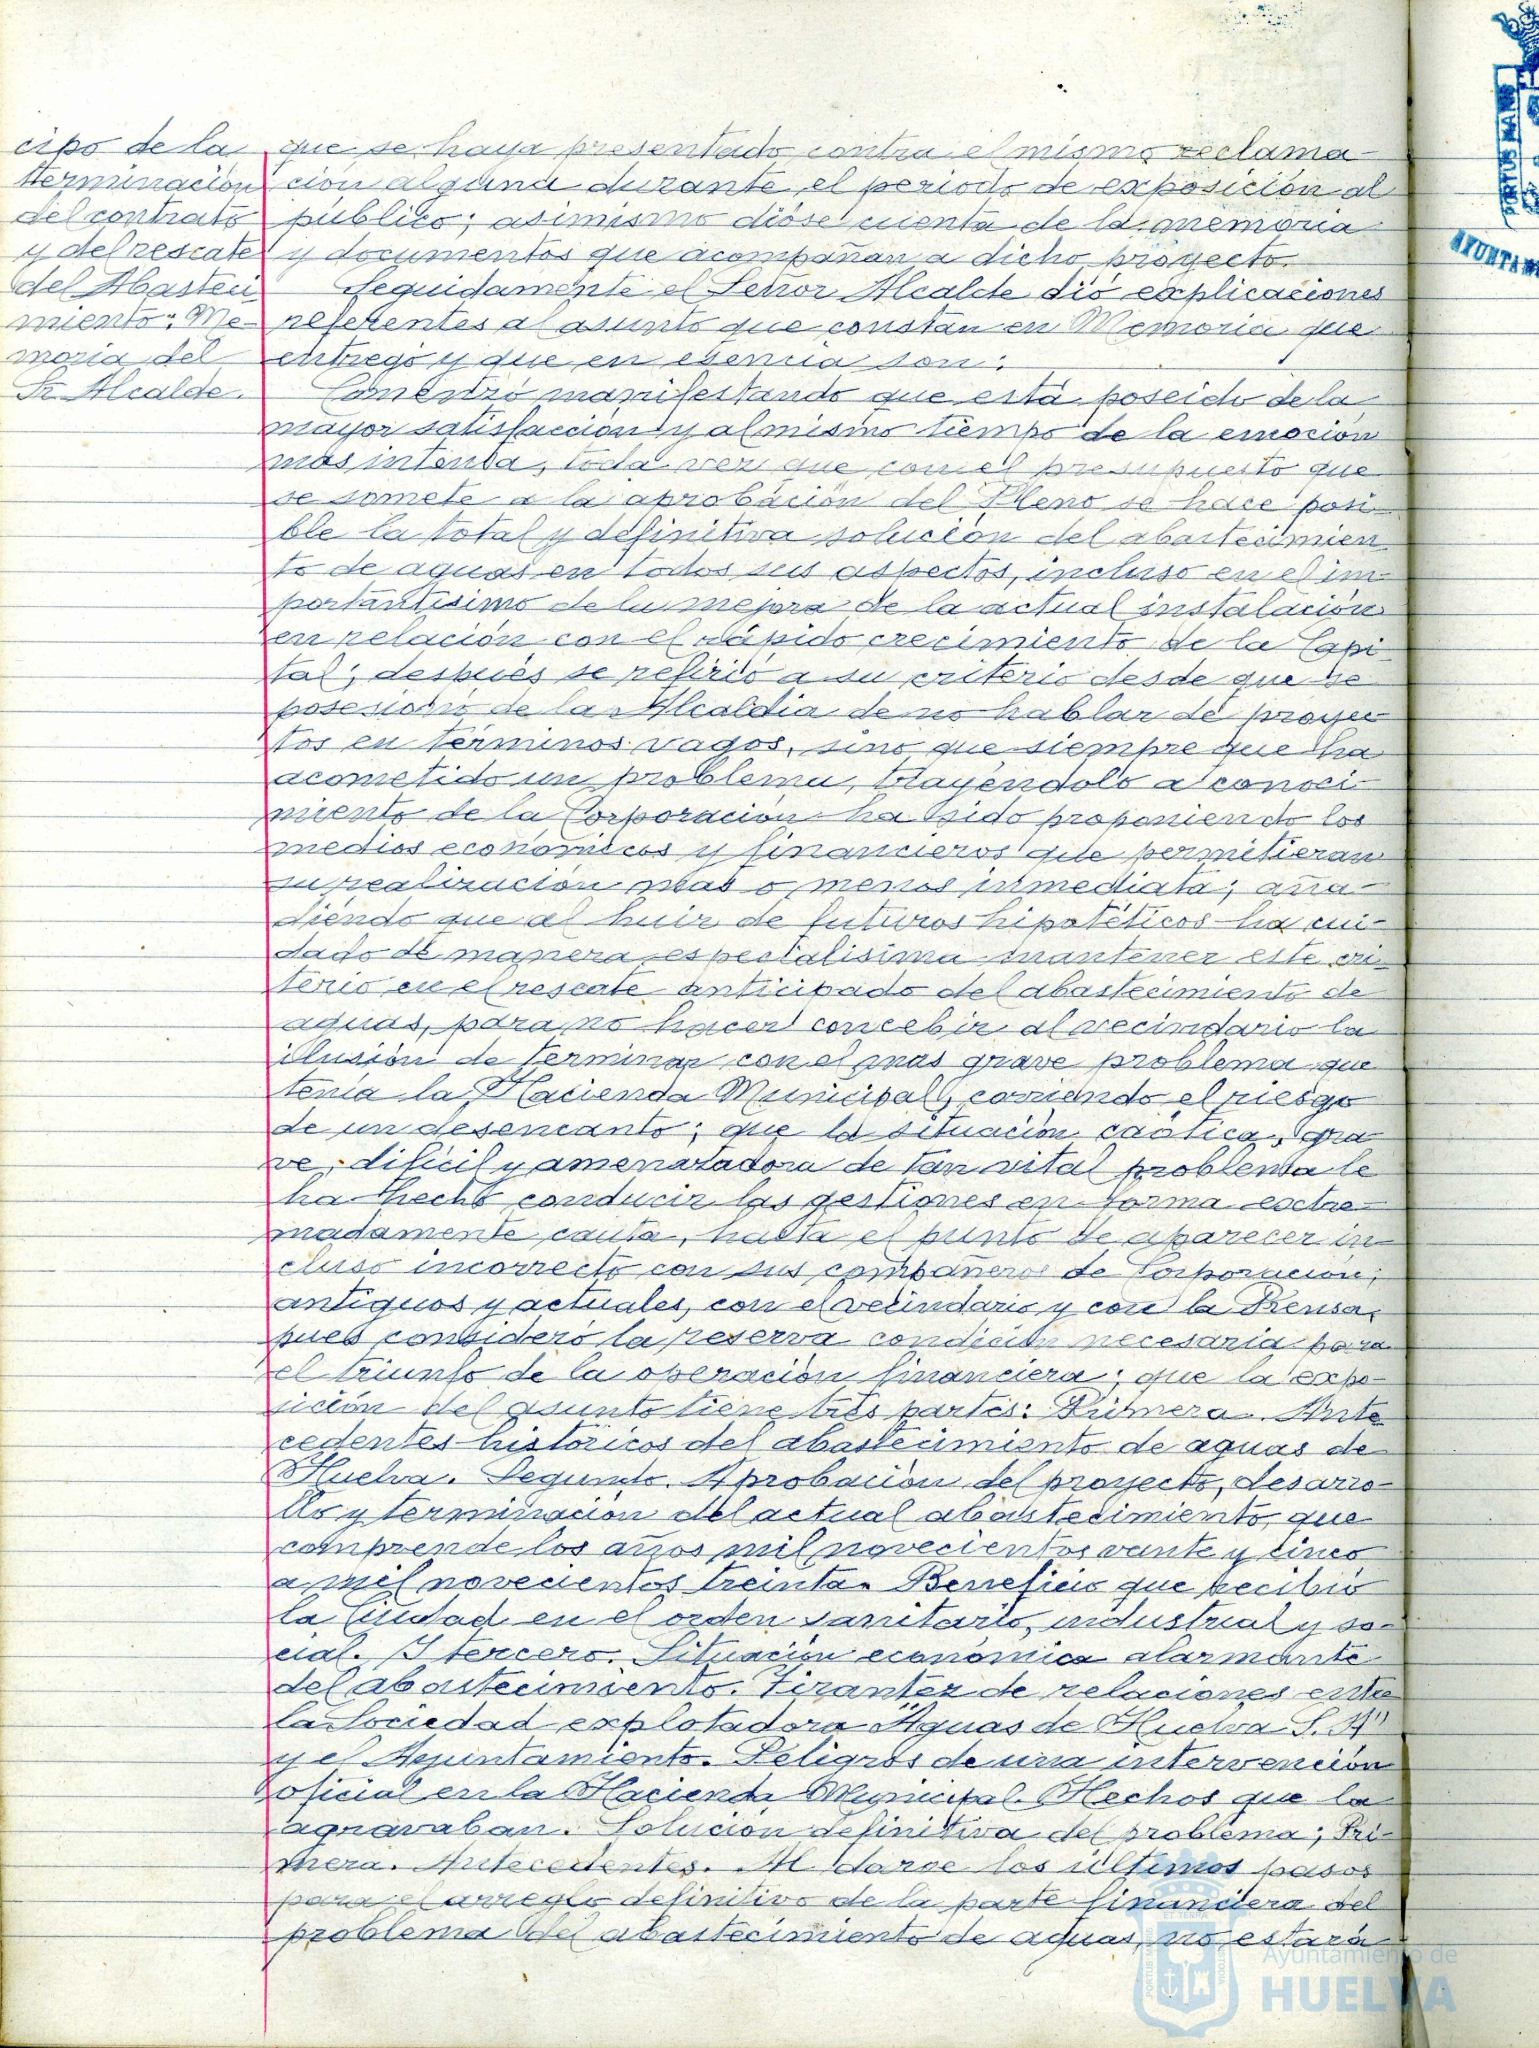 cipo de la
terminación
del contrato
y del rescate
del Abasteci
miento: Me-
moria del
Sr. Alcalde.
que se haya presentado contra el mismo reclama-
ción alguna durante el periodo de exposición al
público; asimismo dióse cuenta de la memoria
y documentos que acompañan a dicho proyecto.
Seguidamente el Señor Alcalde dió explicaciones
referentes al asunto que constan en Memoria que
entregó y que en esencia son:
Comenzó manifestando que está poseido de la
mayor satisfacción y al mismo tiempo de la emoción
mas intensa, toda vez que con el presupuesto que
se somete a la aprobación del Pleno se hace posi-
ble la total y definitiva solución del abastecimien
to de aguas en todos sus aspectos, incluso en el im-
portantisimo de la mejora de la actual instalación
en relación con el rápido crecimiento de la Capi-
tal; después se refirió a su criterio desde que se
posesionó de la Alcaldia de no hablar de proyec-
tos en términos vagos, sino que siempre que ha
acometido un problema, trayéndolo a conoci-
miento de la Corporación ha sido proponiendo los
medios económicos y financieros que permitieran
su realización mas o menos inmediata; aña-
diendo que al huir de futuros hipotéticos ha cui-
dado de manera especialisima mantener este cri-
terio en el rescate anticipado del abastecimiento de
aguas, para no hacer concebir al vecindario la
ilusión de terminar con el mas grave problema que
tenía la Hacienda Municipal, corriendo el riesgo
de un desencanto; que la situación caótica, gra
ve, dificil y amenazadora de tan vital problema le
ha hecho conducir las gestiones en forma extre-
madamente cauta, hasta el punto de aparecer in-
cluso incorrecto con sus compañeros de Corporación,
antiguos y actuales, con el vecindario y con la Prensa,
pues consideró la reserva condición necesaria para
el triunfo de la operación financiera; que la expo-
sición del asunto tiene tres partes: Primera. Ante
cedentes históricos del abastecimiento de aguas de
Huelva. Segundo. Aprobación del proyecto, desarro-
llo y terminación del actual abastecimiento, que
comprende los años mil novecientos veinte y cinco
a mil novecientos treinta. Beneficio que recibió
la Ciudad en el orden sanitario, industrial y so-
cial. Y tercero. Situación económica alarmante
del abastecimiento. Tirantez de relaciones entre
la Sociedad explotadora "Aguas de Huelva S. A"
y el Ayuntamiento. Peligros de una intervención
oficial en la Hacienda Municipal. Hechos que la
agravaban. Solución definitiva del problema; Pri-
mera. Antecedentes. Al darse los últimos pasos
para el arreglo definitivo de la parte financiera del
problema del abastecimiento de aguas, no estará
PORTUS MARIS
Ayuntamiento de
HUELVA